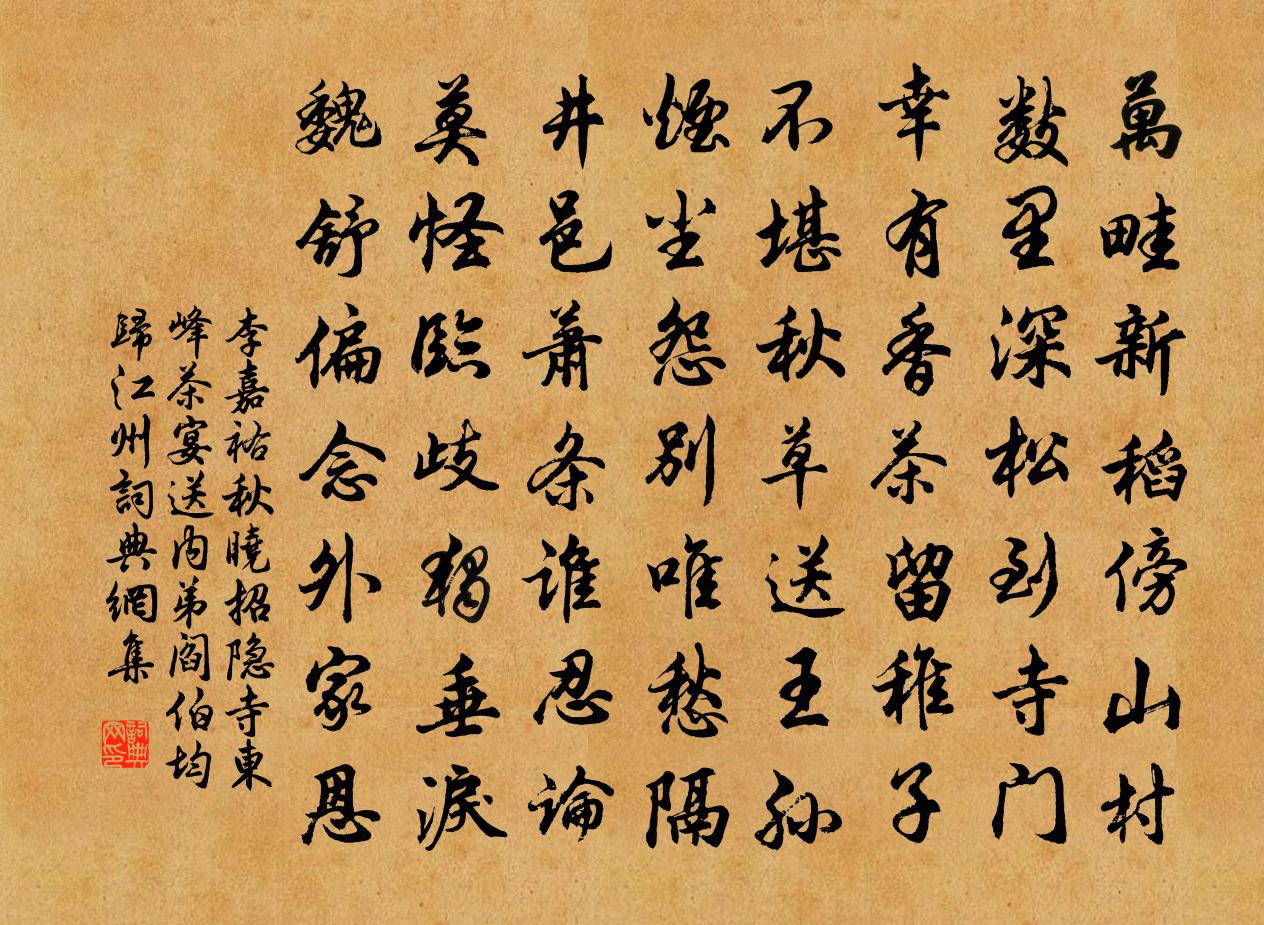 萬畦新稻傍山村
數里深松到寺门
幸有香茶留稚子
不堪秋草送王孙
煙尘怨别唯愁隔
井邑蕭条谁忍論
莫怪臨歧獨垂淚
魏舒偏念外家恩
李嘉祐秋曉招隐寺東
峰茶宴送内弟閻伯均
歸江州詞典網集
詞典網印